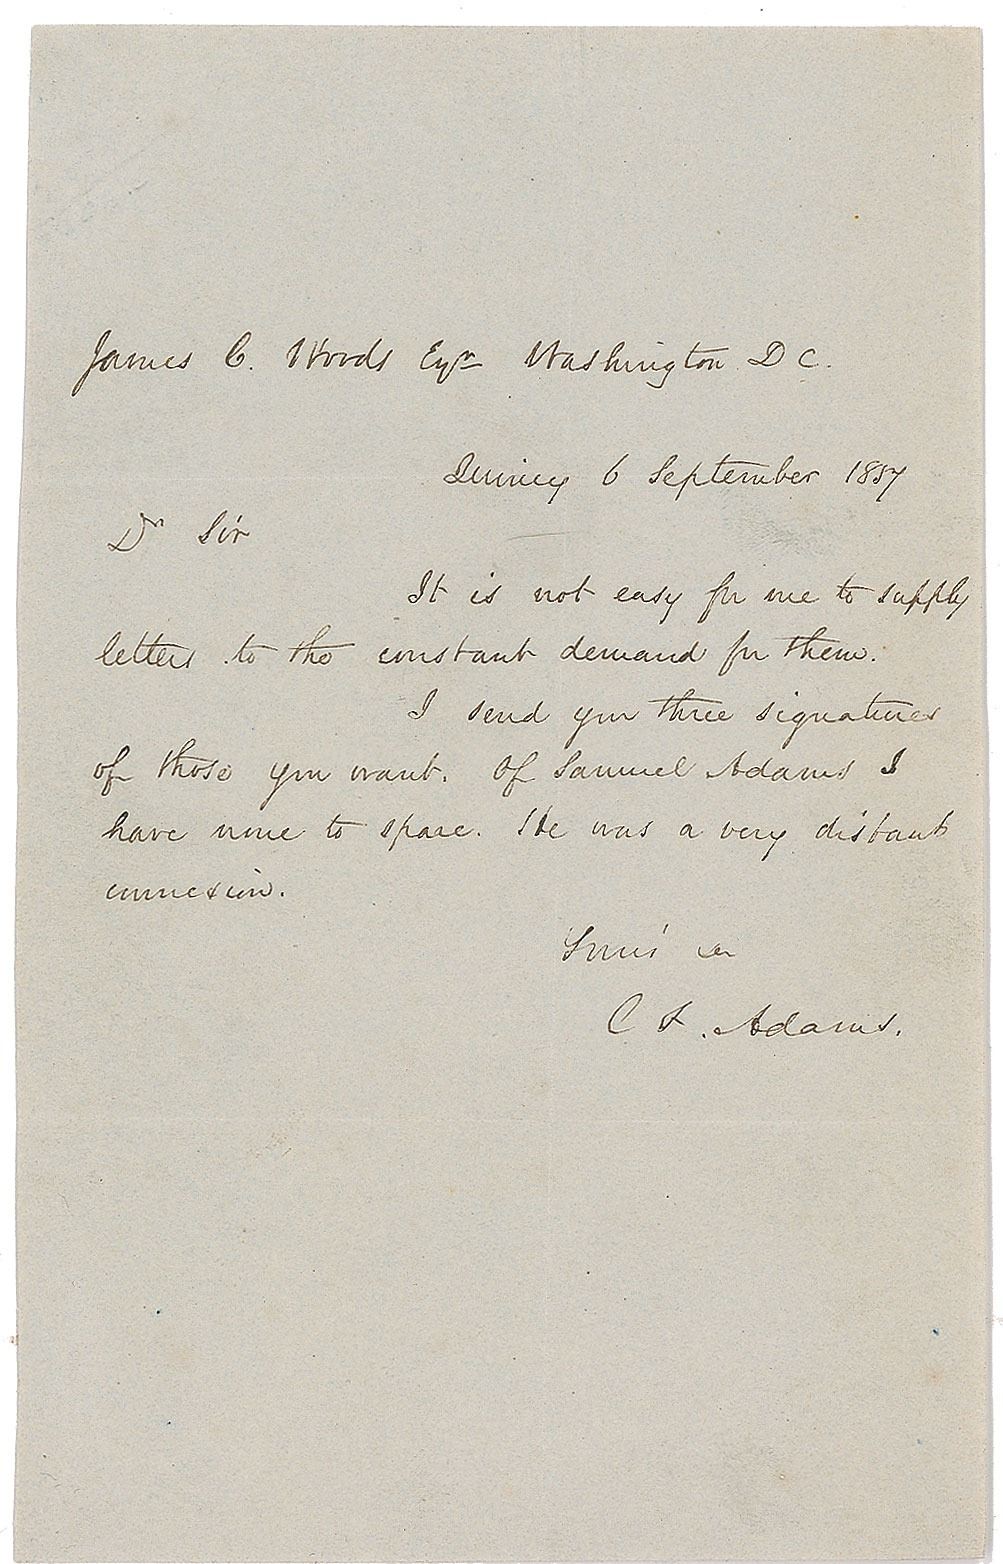 James C. Woods Esqr Washington D C.
Quincy 6 September 1857
Dr Sir
It is not easy for me to supply
letters to the constant demand for them.
I send you three signatures
of those you want. Of Samuel Adams I
have none to spare. He was a very distant
connexion.
Yours &c
C F. Adams.